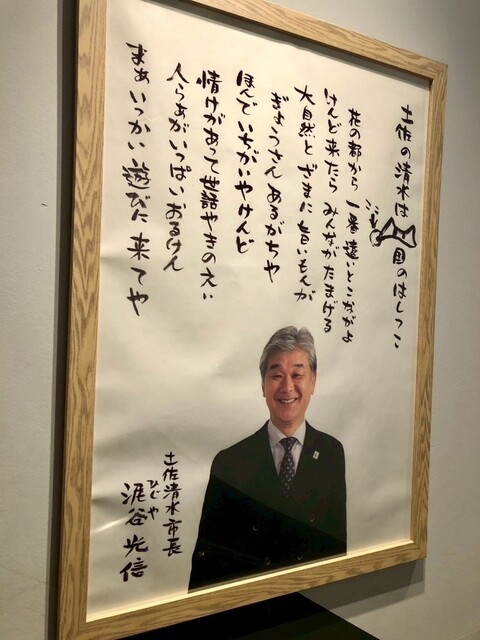 土佐の清水は四国のはしっこ
ここ
花の都から 一番遠いとこながよ
けんど来たら みんながたまげる
大自然と ざまに旨いもんが
ぎょうさん あるがちや
ほんで いちがいやけんど
情けがあって世話やきのえい
人らあがいっぱいおるけん
まぁいっかい遊びに来てや
土佐清水市長
ひじや
泥谷光信